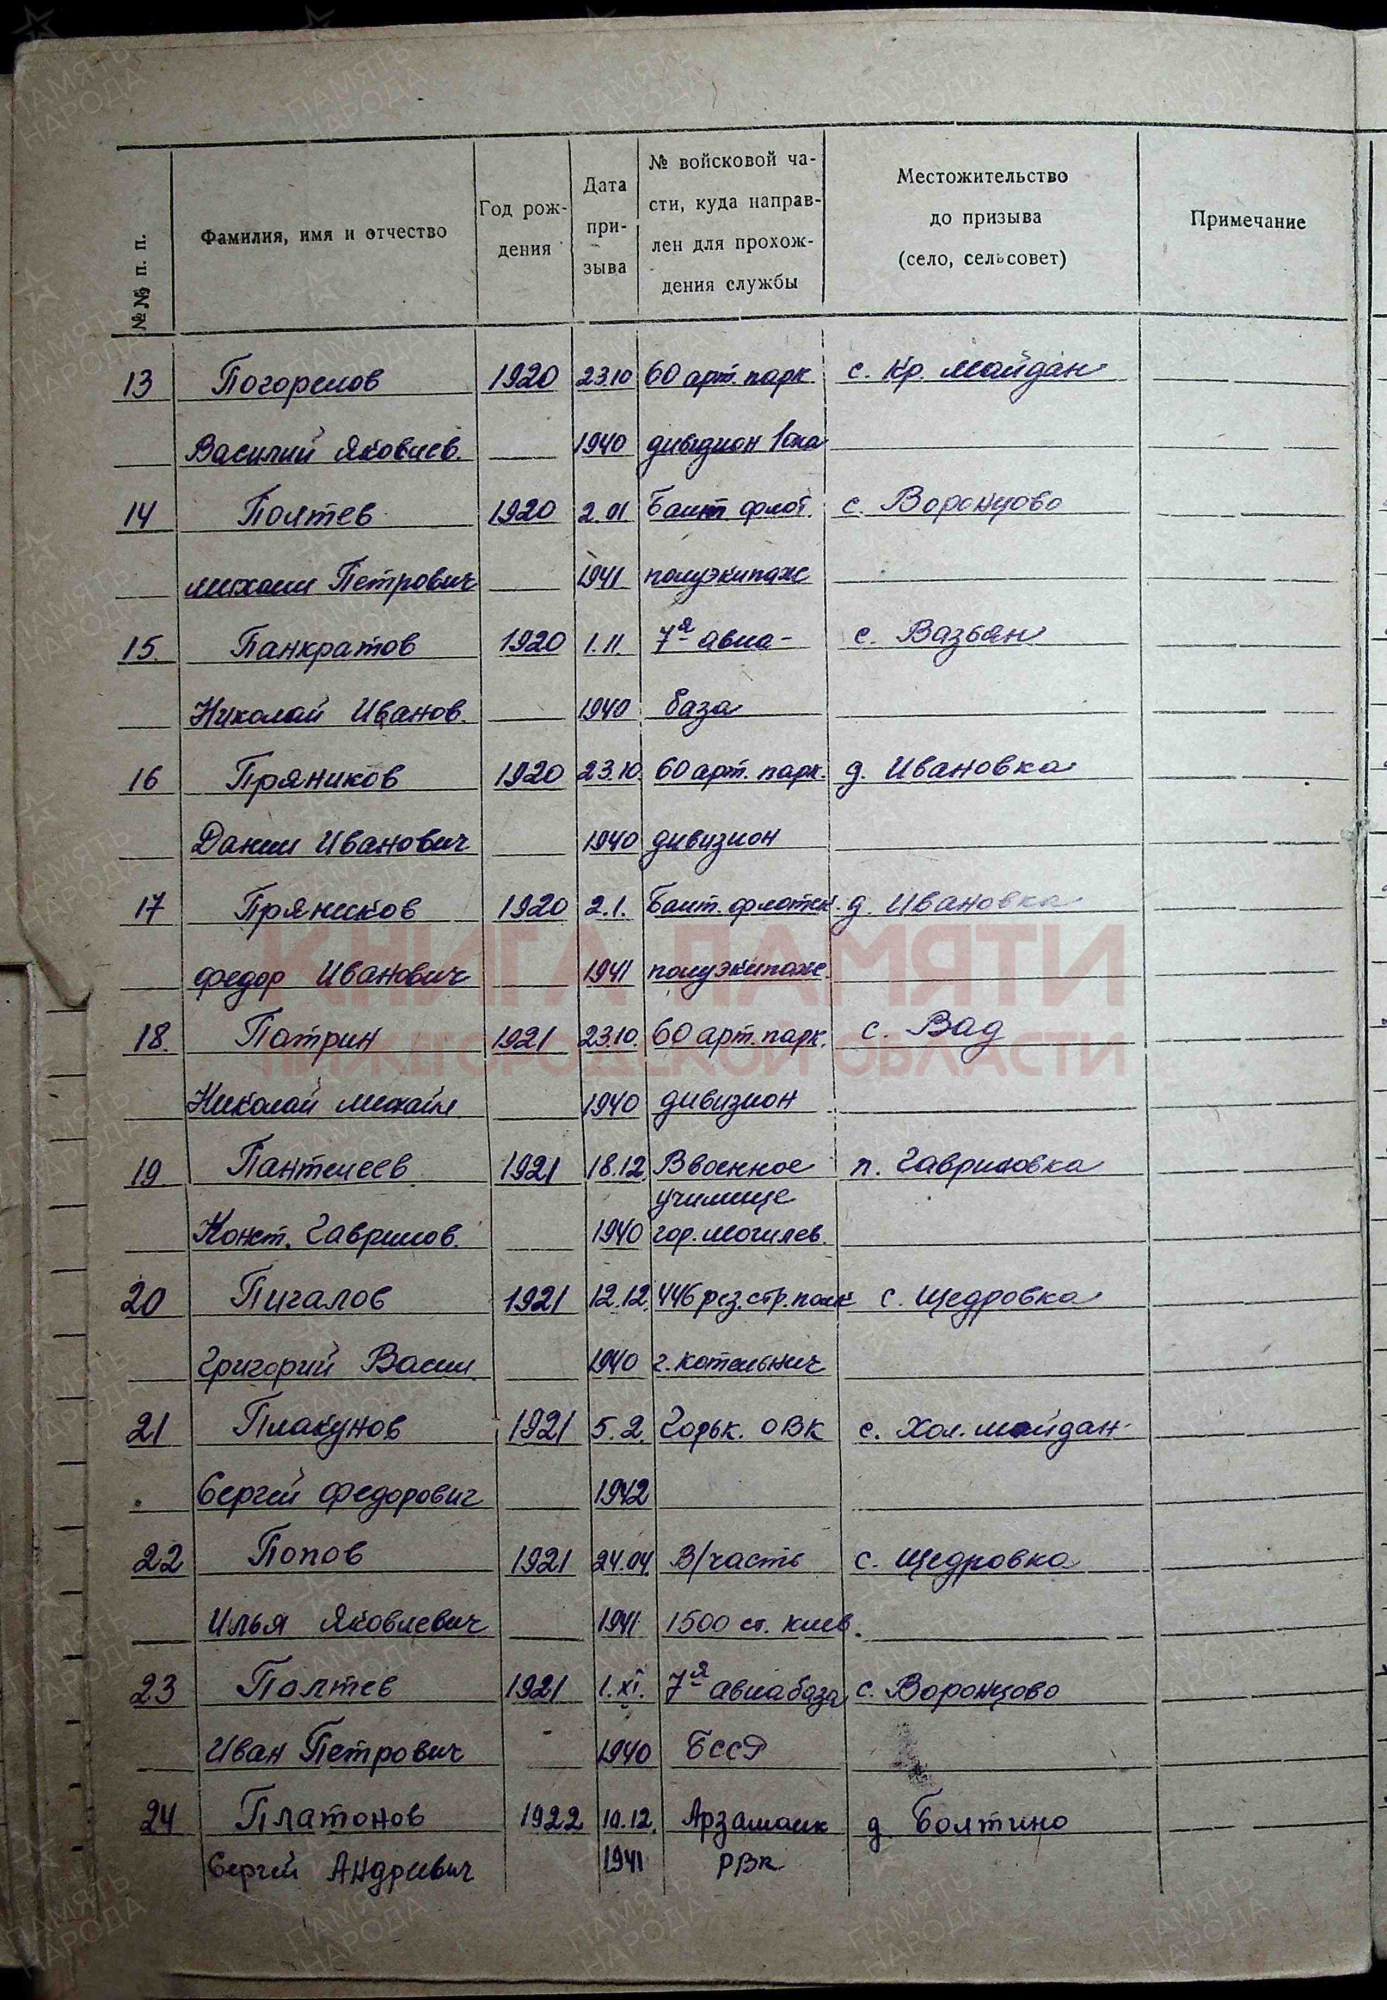 №№ п. п.
Фамилия, имя и отчество
Год рож-
дения
Дата
при-
зыва
№ войсковой ча-
сти, куда направ-
лен для прохож-
дения службы
Местожительство
до призыва
(село, сельсовет)
Примечание
13 Погорелов 1920 23.10 60 арт. парк с. Кр. Майдан
Василий Яковлев. 1940 дивизион
14 Полтев 1920 2.01 Балт флот. с. Воронцово
Михаил Петрович 1941 полуэкипаж
15. Панкратов 1920 1.11. 7я авиа- с. Вазьян
Николай Иванов. 1940 база
16 Пряников 1920 23.10. 60 арт. парк. д. Ивановка
Данил Иванович 1940 дивизион
17 Пряников 1920 2.1. Балт. флотск. д. Ивановка
Федор Иванович 1941 полуэкипаж.
18. Патрин 1921 23.10. 60 арт. парк. с. Вад
Николай Михайл 1940 дивизион
19 Пантелеев 1921 18.12. В военное п. Гавриловка
училище
Конст. Гаврилов. 1940 гор. Могилев.
20 Пигалов 1921 12.12. 446 рез. стр. полк с. Щедровка
Григорий Васил. 1940 г. Котельнич
21 Плакунов 1921 5.2. Горьк. ОВК с. Хол. Майдан
Сергей Федорович 1942
22 Попов 1921 24.04. В/часть с. Щедровка
Илья Яковлевич 1941 1500 ст. Киев.
23 Полтев 1921 1.XI. 7я авиабаза с. Воронцово
Иван Петрович 1940 БССР
24 Платонов 1922 10.12. Арзамаск д Болтино
Сергей Андреевич 1941 РВК
КНИГА ПАМЯТИ
НИЖЕГОРОДСКОЙ ОБЛАСТИ
ПАМЯТЬ
НАРОДА